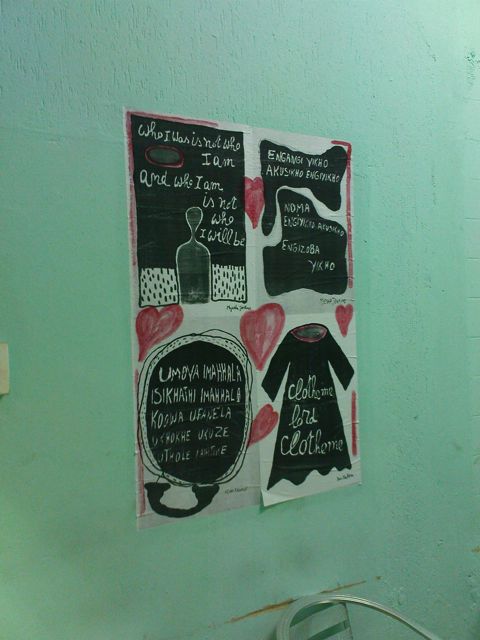 Who I was is not who
I am
and who I am
is not
who
I will be
ENGANGI YIKHO
AKUSIKHO ENGIYIKHO
NOMA
ENGIYIKHO AKUSIKHO
ENGIZOBA
YIKHO
UMOYA IMAHHALA
ISIKHATHI IMAHHALA
KODWA UFANELA
UKUZE
UTHOLE
Clothe me
lord
Clothe me